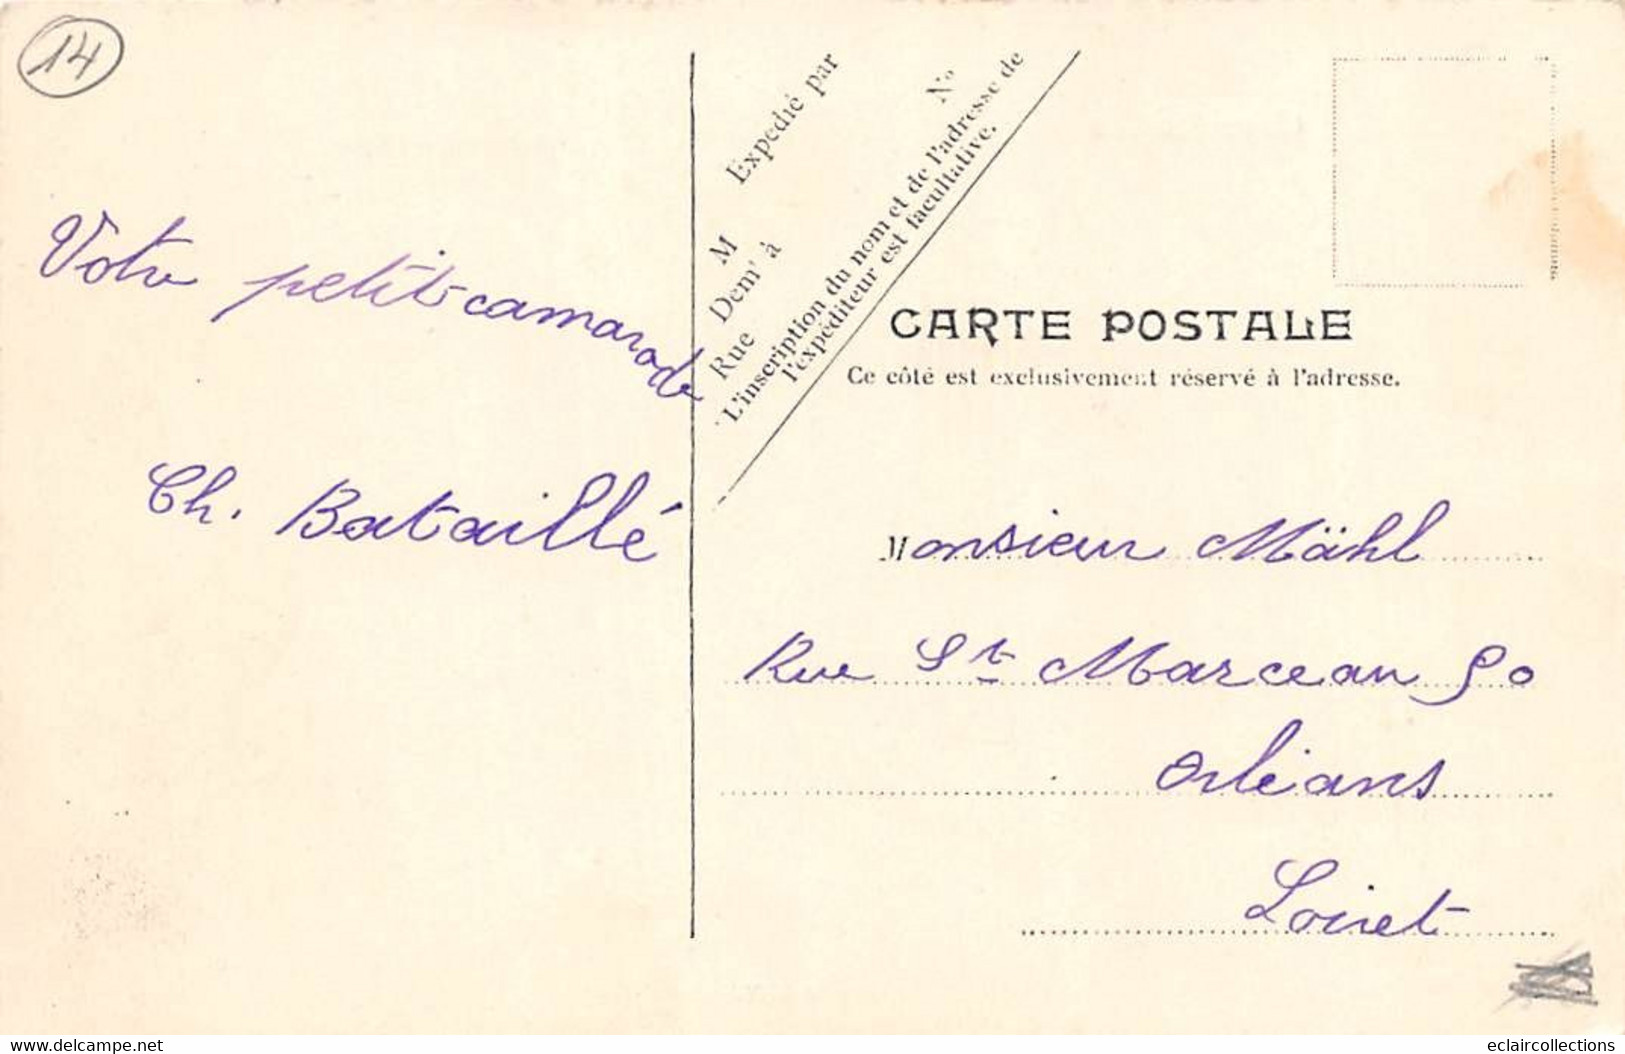 14
Votre petit camarade
Ch. Bataillé
Expedié par
M
N°
Dem^t à
Rue
L'inscription du nom et de l'adresse de
l'expéditeur est facultative.
CARTE POSTALE
Ce côté est exclusivement réservé à l'adresse.
Monsieur Mähl
Rue St Marceau 90
Orléans
Loiret
www.delcampe.net
eclaircollections